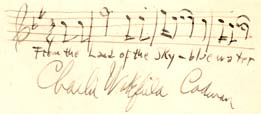 From the Land of the Sky-blue water
Charles Wakefield Cadman